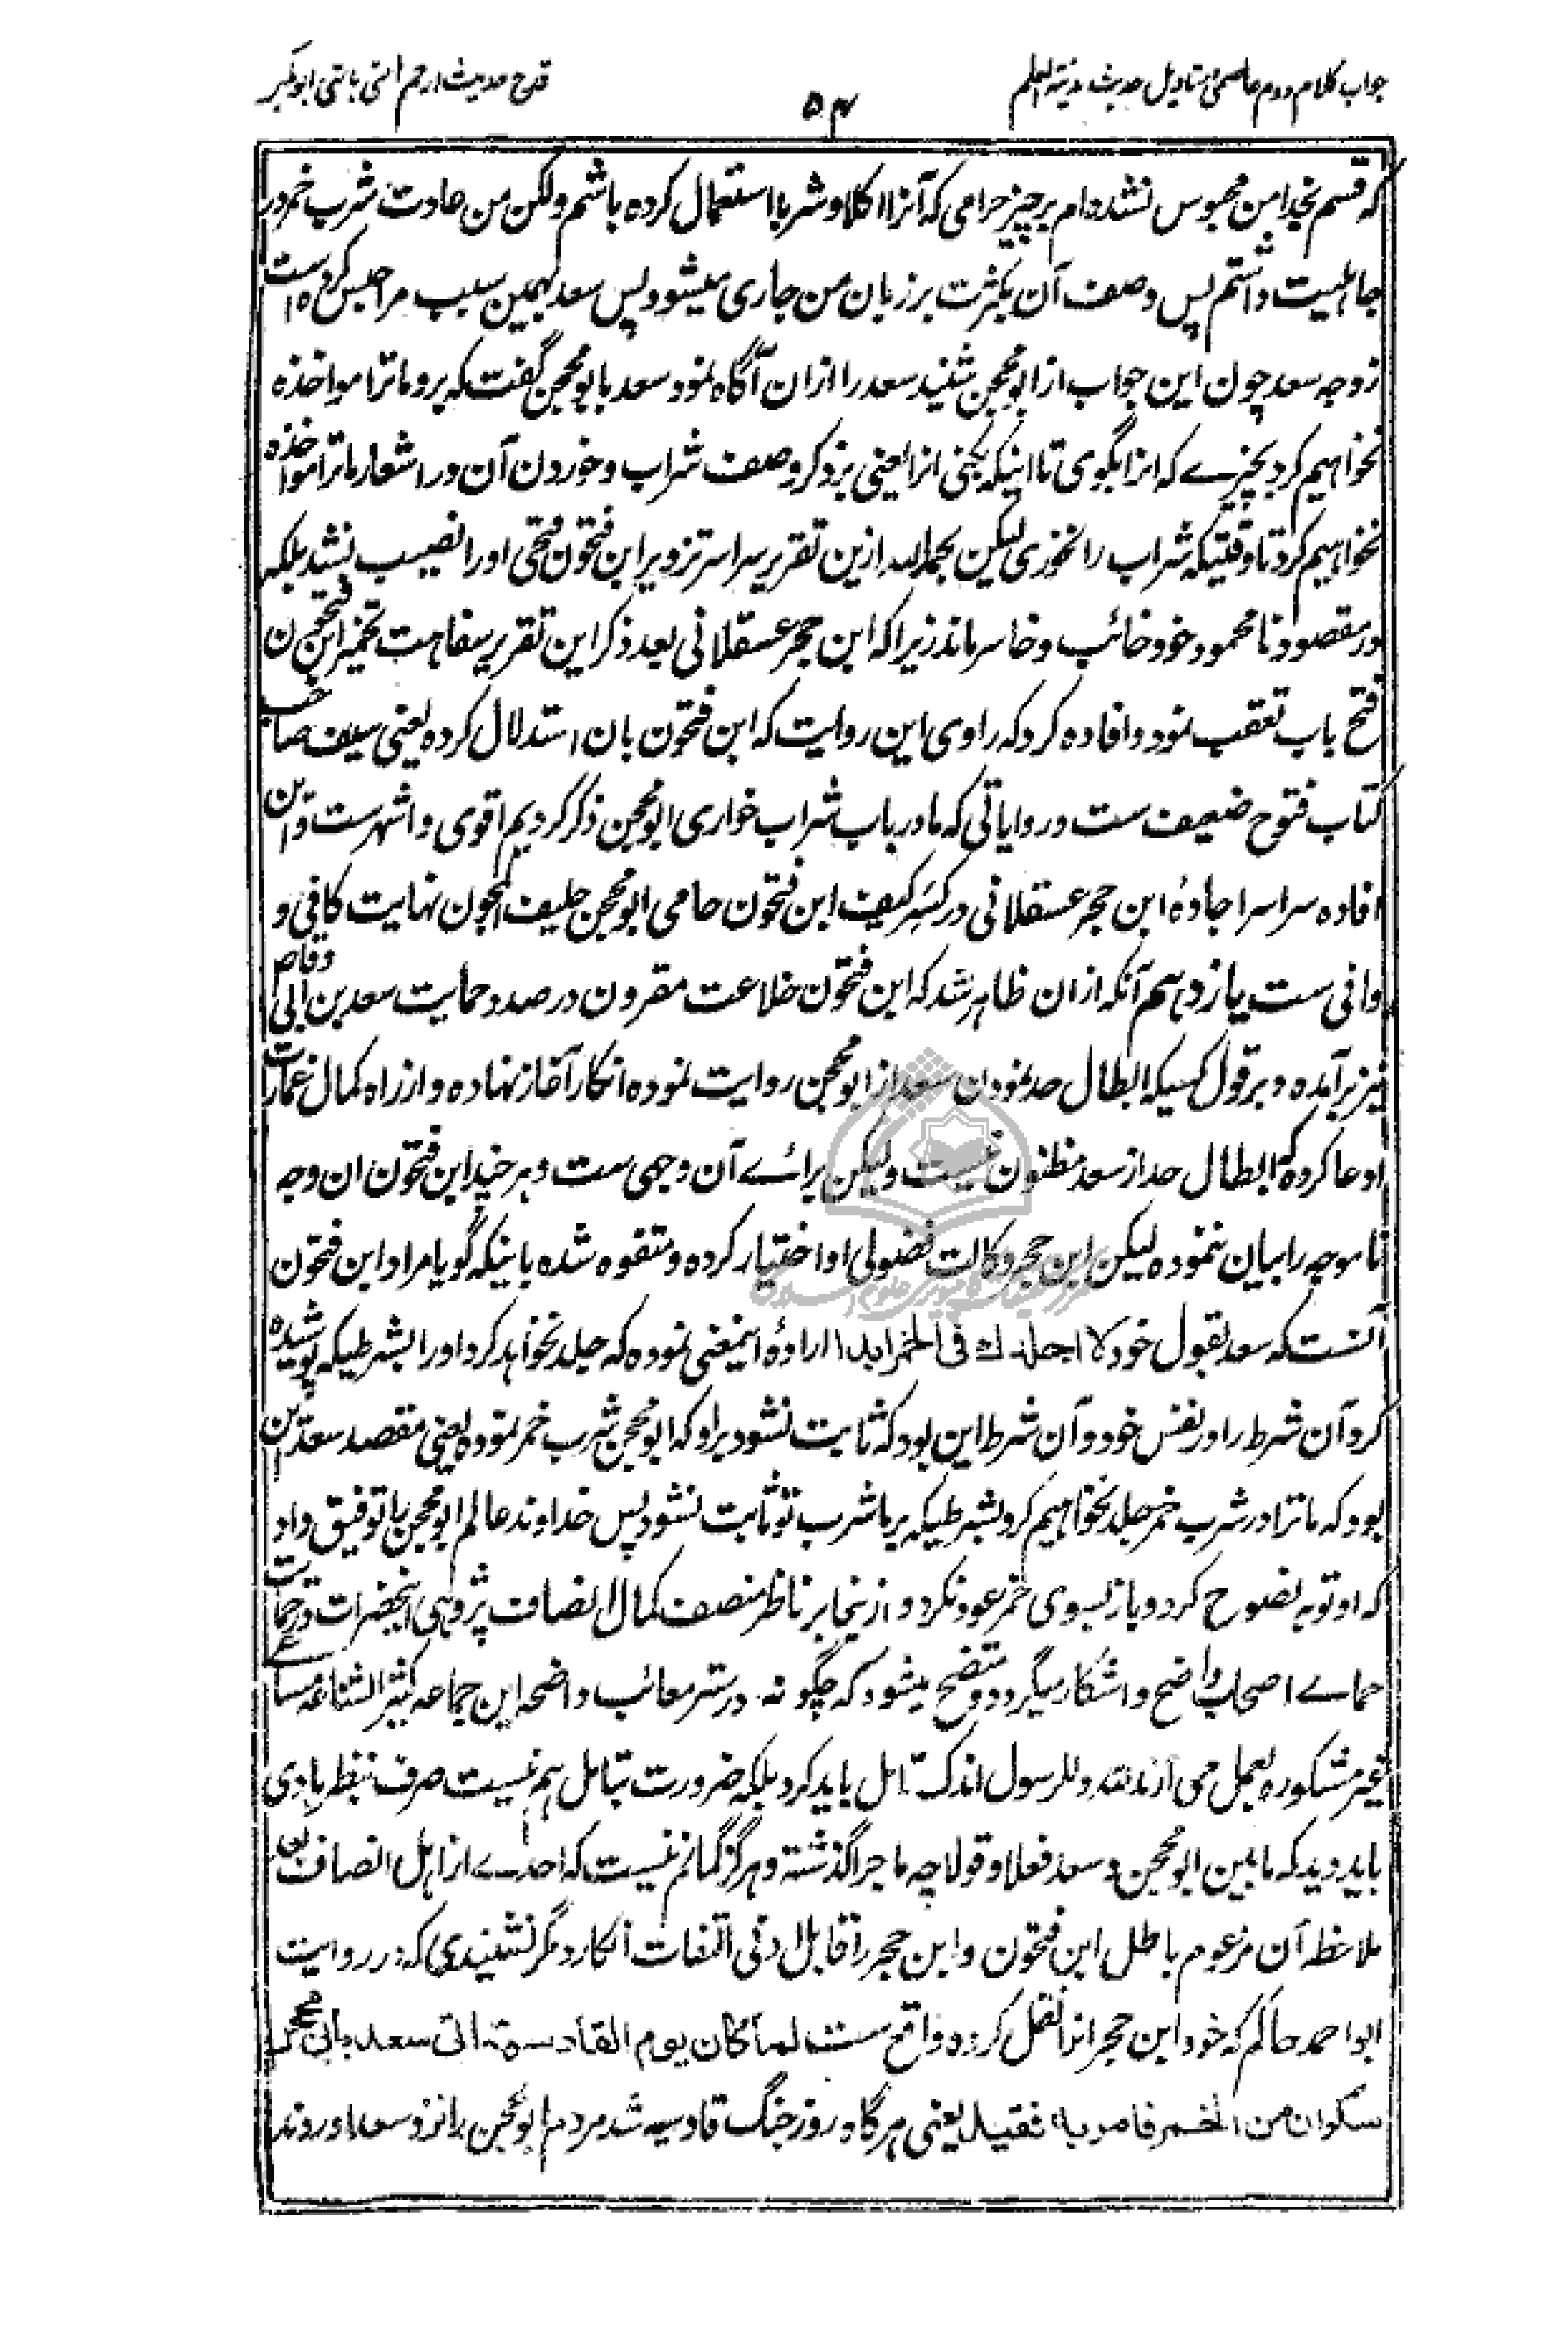 جواب کلام دوم عاصمی بتاویل حدیث مدینة العلم
۵۴
قدح حدیث ارحم امتی بامتی ابوبکر
که قسم بخدا من محبوس نشده‌ام بر چیز حرامی که آنرا اکلا و شربا استعمال کرده باشم ولکن من عادت شرب خمر در
جاهلیت داشتم پس وصف آن بکثرت بر زبان من جاری میشود پس سعد بهمین سبب مرا حبس کرده است
زوجه سعد چون این جواب از ابو محجن شنید سعد را ازان آگاه نمود سعد با بو محجن گفت که برو ما ترا مواخذه
نخواهیم کرد بچیزے که انرا بگوی تا اینکه بکنی انرا یعنی بر ذکر وصف شراب و خوردن آن در اشعار ما ترا مواخذه
نخواهیم کرد تا وقتیکه شراب را نخوری لیکن بحمد الله ازین تقریر سراسر تزویر ابن فتحون فتحی اورا نصیب نشد بلکه
در مقصود نا محمود خود خائب و خاسر ماند زیرا که ابن حجر عسقلانی بعد ذکر این تقریر سفاهت تخمیر ابن فتحون
فتح باب تعقب نمود و افاده کرد که راوی این روایت که ابن فتحون بان استدلال کرده یعنی سیف صاحب
کتاب فتوح ضعیف ست و روایاتی که ما در باب شراب خواری ابو محجن ذکر کردیم اقوی و اشهرست و این
افاده سراسر اجادهٔ ابن حجر عسقلانی در کسر کیف ابن فتحون حامی ابو محجن حلیف المجون نهایت کافی و
وافی ست یازدهم آنکه ازان ظاهر شد که ابن فتحون خلاعت مقرون در صدد حمایت سعد بن ابی وقاص
نیز برآمده و بر قول کسیکه ابطال حد نمودن سعد از ابو محجن روایت نموده انکار آغاز نهاده و از راه کمال غمارت
ادعا کرده که ابطال حد از سعد مظنون نیست ولیکن برائے آن وجهی ست و هر چند ابن فتحون ان وجه
نا موجه را بیان ننموده لیکن ابن حجر وکالت فضولی اورا اختیار کرده و متفوه شده باینکه گویا مراد ابن فتحون
آنست که سعد بقول خود لا اجلدك فی الخمر ابدا ارادهٔ اینمعنی نموده که جلد نخواهد کرد اورا بشرطیکه پوشیده
کرد آن شرط را در نفس خود و آن شرط این بود که ثابت نشود براو که ابو محجن شرب خمر نموده یعنی مقصد سعد این
بود که ما ترا در شرب خمر جلد نخواهیم کرد بشرطیکه بر ما شرب تو ثابت نشود پس خداوند عالم ابو محجن را توفیق داد
که او توبه نصوح کرد و باز بسوی خمر عود نکرد و ازینجا بر ناظر منصف کمال انصاف پژوهی اینحضرات در حمایت
حماے اصحاب واضح و اشکار میگردد و متضح میشود که چگونه در ستر معائب واضحه این جماعه کثیر الشناعه مساعے
غیر مشکوره بعمل می ارند لله و للرسول اندک تامل باید کرد بلکه ضرورت تامل هم نیست صرف بنظر بادی
باید دید که ما بین ابو محجن و سعد فعلا و قولا چه ماجرا گذشته و هرگز گمانم نیست که احدے از اهل انصاف بعد
ملاحظه آن مزعوم باطل ابن فتحون و ابن حجر را قابل ادنی التفات انکارد مگر نشنیدی که در روایت
ابو احمد حاکم که خود ابن حجر انرا نقل کرده واقع ست لما کان یوم القادسیة اتی سعد بابی محجن
سکران من الخمر فامر به فقید یعنی هرگاه روز جنگ قادسیه شد مردم ابو محجن را نزد سعد اوردند